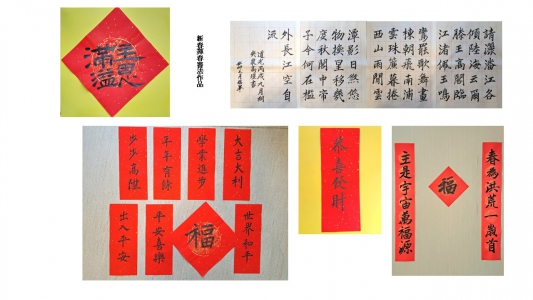 主恩
滿溢
新春揮春書法作品
請灑潘江各
傾陸海云爾
滕王高閣臨
江渚佩玉鳴
鸞罷歌舞畫
棟朝飛南浦
雲珠簾暮捲
西山雨閒雲
潭影日悠悠
物換星移幾
度秋閣中帝
子今何在檻
外長江空自
流
大吉大利
學業進步
年年有餘
步步高陞
世界和平
福
平安喜樂
出入平安
恭喜發財
春為洪荒一歲首
福
主是宇宙萬福源